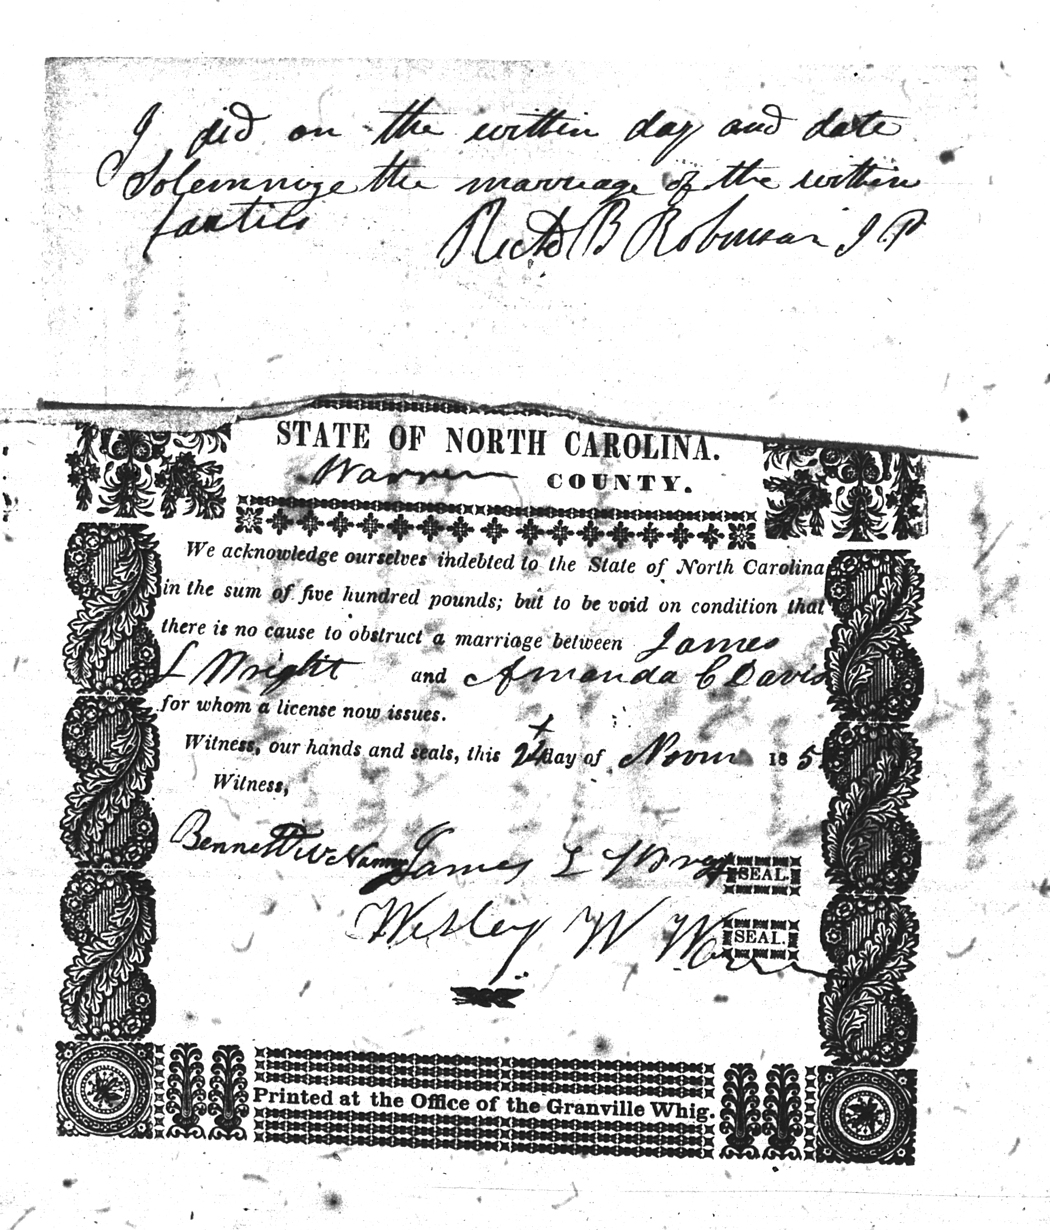 I did on the within day and date
Solemnize the marriage of the within
parties Richd B Robinson J.P
STATE OF NORTH CAROLINA.
Warren COUNTY.
We acknowledge ourselves indebted to the State of North Carolina
in the sum of five hundred pounds; but to be void on condition that
there is no cause to obstruct a marriage between James
L Wright and Amanda C Davis
for whom a license now issues.
Witness, our hands and seals, this day of Novm 185
Witness,
Bennett James L SEAL.
Wesley W SEAL.
Printed at the Office of the Granville Whig.